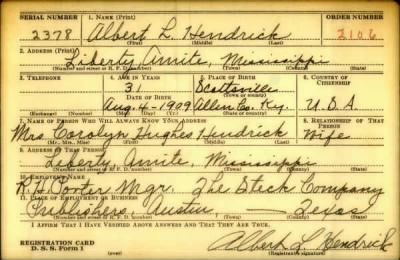 SERIAL NUMBER 1. NAME (Print) ORDER NUMBER
2378 Albert L. Hendrick 2106
(First) (Middle) (Last)
2. ADDRESS (Print)
Liberty Amite, Mississippi
(Number and street or R. F. D. number) (Town) (County) (State)
3. TELEPHONE 4. AGE IN YEARS 5. PLACE OF BIRTH 6. COUNTRY OF CITIZENSHIP
31 Scottsville
DATE OF BIRTH (Town or county)
Aug. 4-1909 Allen Co. Ky. U.S.A.
(Exchange) (Number) (Mo.) (Day) (Yr.) (State or country)
7. NAME OF PERSON WHO WILL ALWAYS KNOW YOUR ADDRESS 8. RELATIONSHIP OF THAT PERSON
Mrs Carolyn Hughes Hendrick Wife
(Mr., Mrs., Miss) (First) (Middle) (Last)
9. ADDRESS OF THAT PERSON
Liberty, Amite, Mississippi
(Number and street or R. F. D. number) (Town) (County) (State)
10. EMPLOYER'S NAME
R. H. Porter Mgr. The Steck Company
11. PLACE OF EMPLOYMENT OR BUSINESS
Publishers Austin Texas
(Number and street or R. F. D. number) (Town) (County) (State)
I AFFIRM THAT I HAVE VERIFIED ABOVE ANSWERS AND THAT THEY ARE TRUE.
REGISTRATION CARD Albert L Hendrick
D. S. S. Form 1 (over) (Registrant's signature)